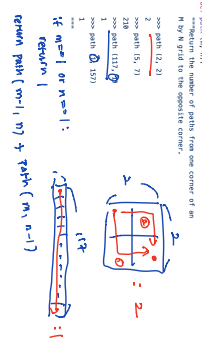 """Return the number of paths from one corner of an
M by N grid to the opposite corner.
>>> path (2, 2)
2
>>> path (5, 7)
210
>>> path (117, 1)
1
>>> path (1, 157)
1
"""
if m == 1 or n == 1 :
return 1
return path(m-1, n) + path(m, n-1)
2
2
: 2
117
: 1